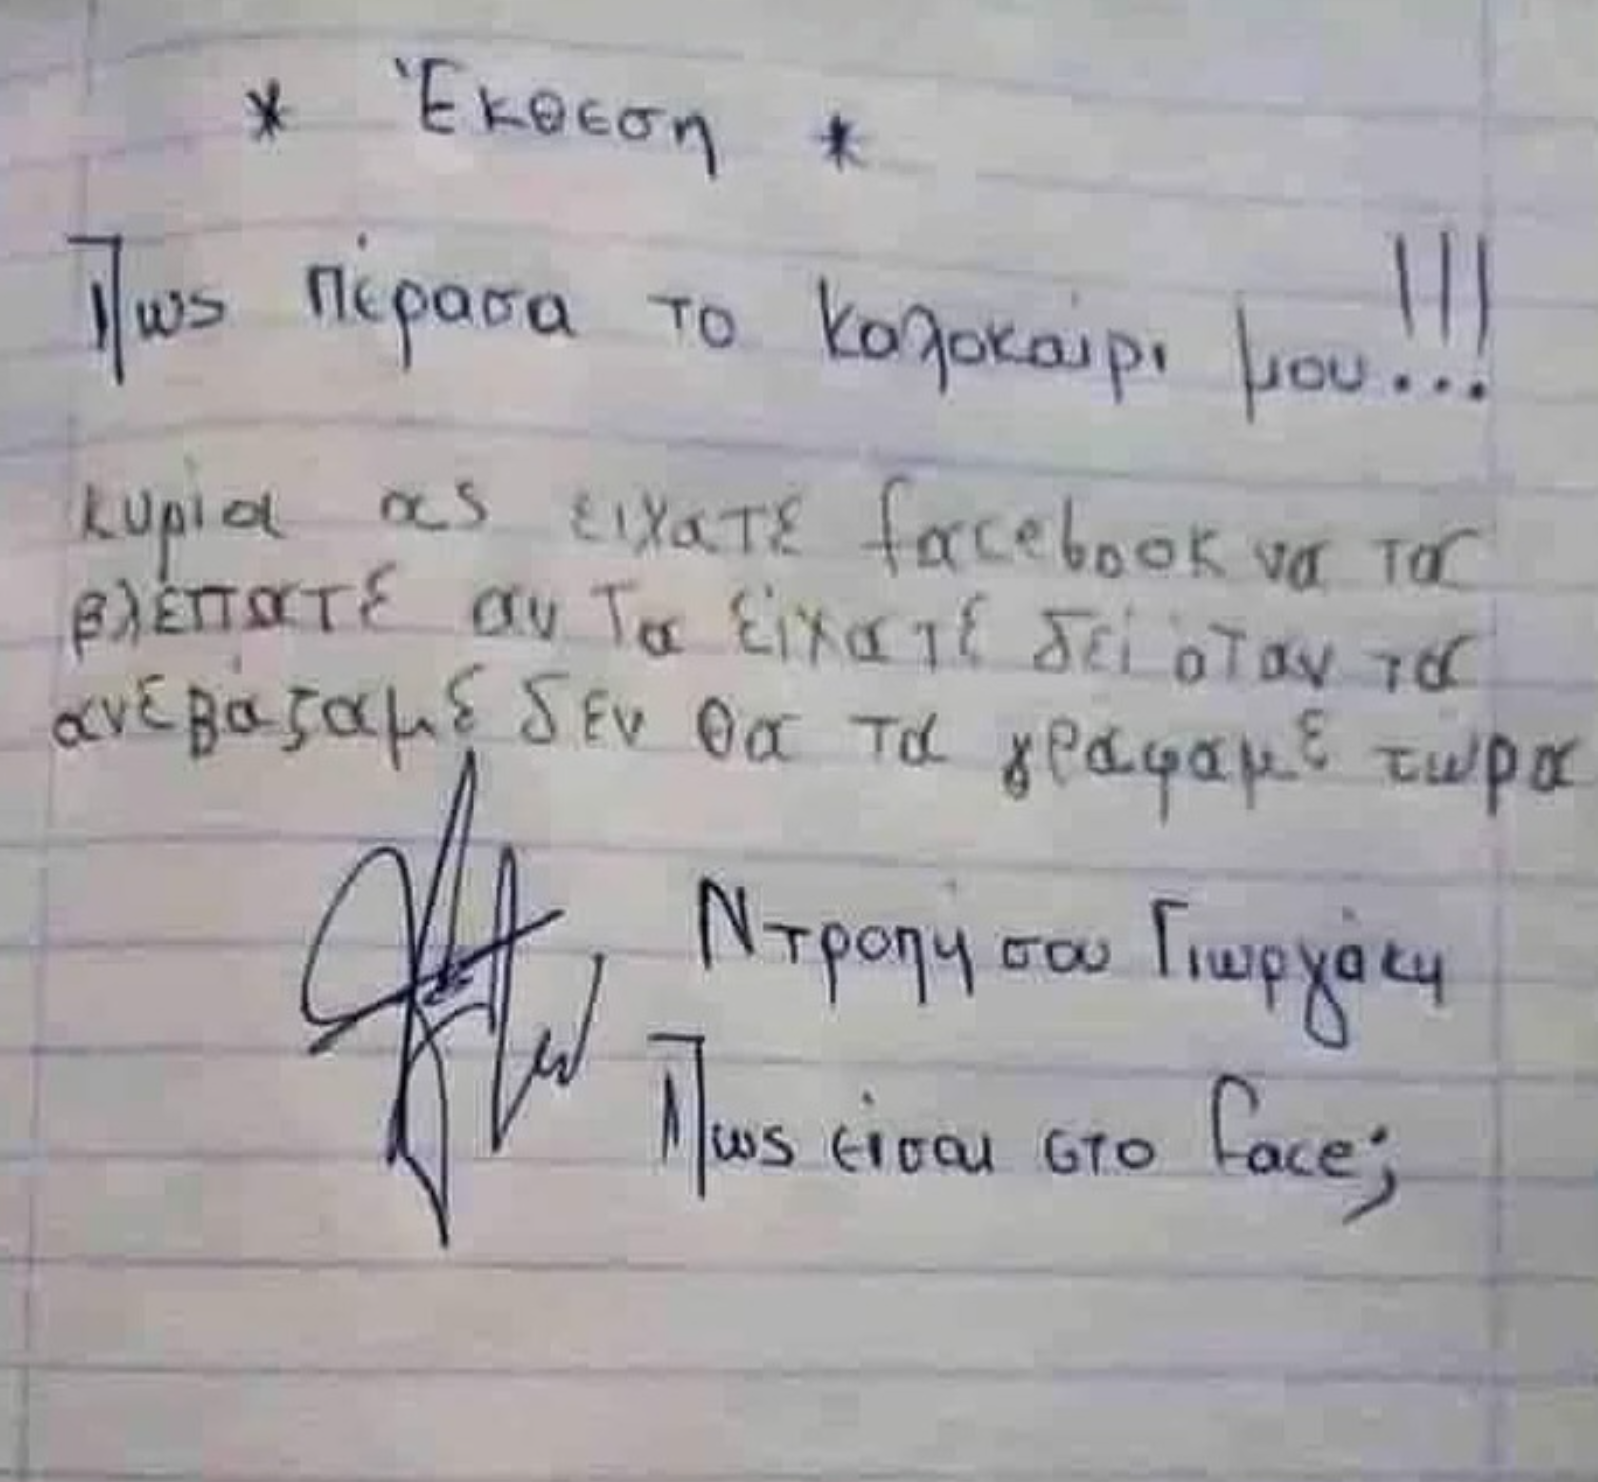 * Έκθεση *
Πως πέρασα το καλοκαίρι μου...!!!
κυρία ας ειχατε facebook να τα
βλέπατε αν τα είχατε δεί όταν τα
ανεβάζαμε δεν θα τα γράφαμε τώρα
Ντροπή σου Γιωργάκη
Πως είσαι στο face;